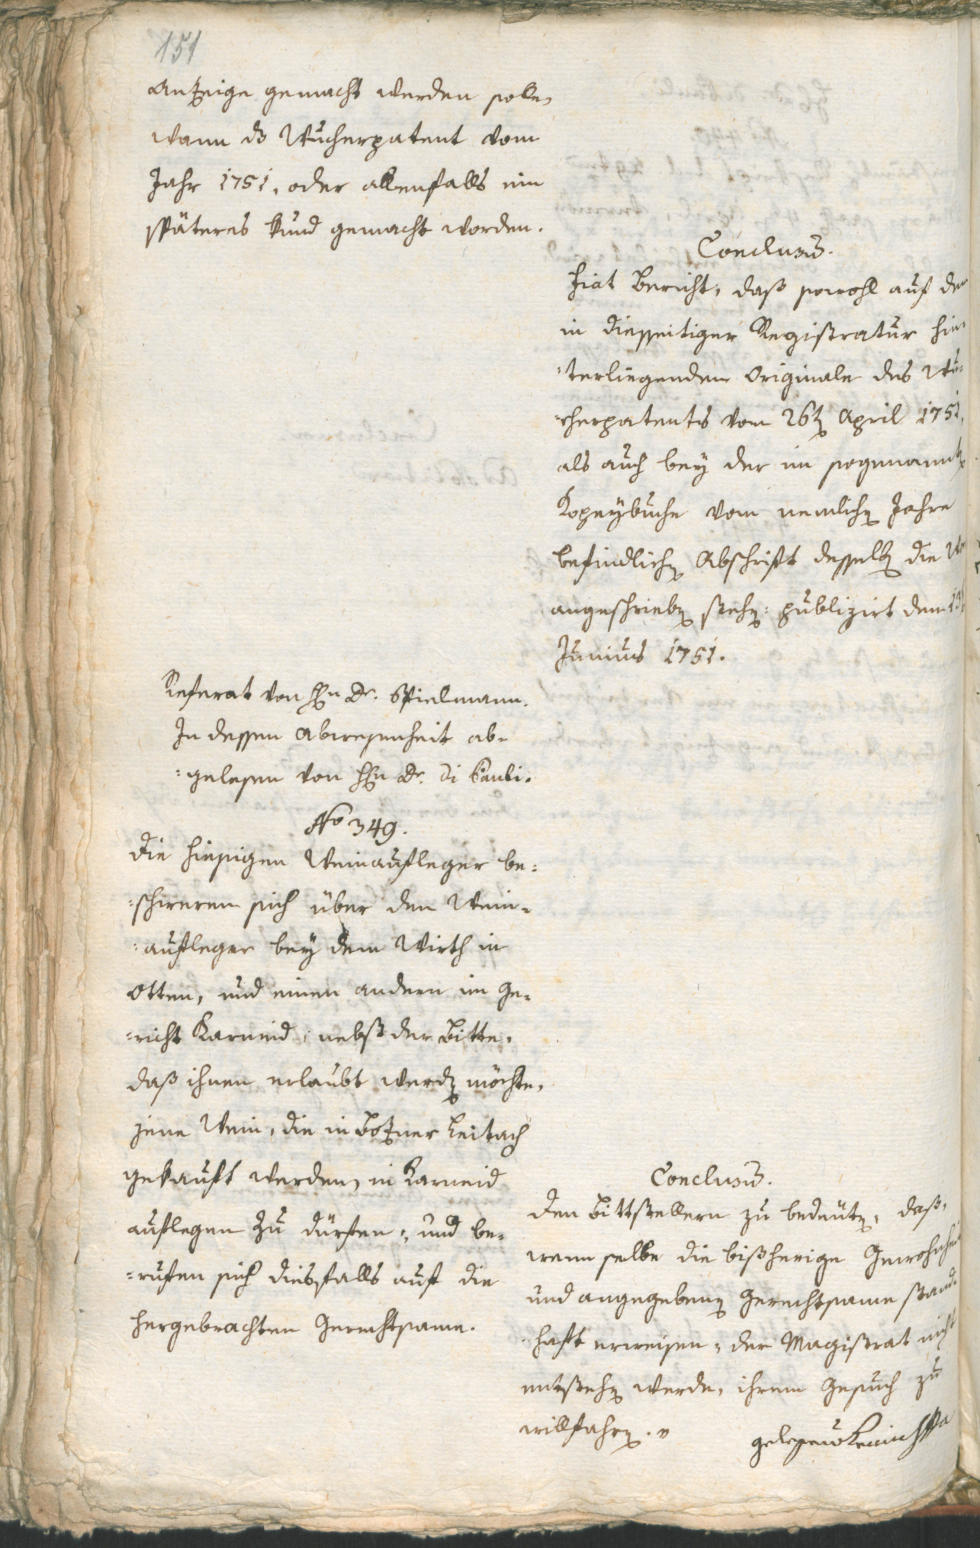 151
Anzeige gemacht werden solle,
wann dz Wucherpatent vom
Jahr 1751, oder allenfalls ein
späteres kund gemacht worden.
Conclusũ.
Fiat Bericht, daß sowohl auf dem
in diesseitiger Registratur hin-
terliegenden Originale des Wu-
cherpatents vom 26t April 1751,
als auch bey der im sogenannt
Kopeybuche vom nemlichen Jahre
befindlichen Abschrift desselben die
angeschrieben stehen: publizirt den 13
Junius 1751.
Referat von Hrn Dr. Spielmann.
In dessen Abwesenheit ab-
gelesen von Hrn Dr. Di Pauli.
No 349.
Die hiesigen Weinaufleger be-
schweren sich über den Wein-
aufleger bey dem Wirth in
Atten, und einen andern im Ge-
richt Karneid, nebst der Bitte,
daß ihnen erlaubt werden möchte,
jene Wein, die in Bozner Leitach
gekauft werden, in Karneid
auflegen zu dürfen, und be-
rufen sich diesfalls auf die
hergebrachten Gerechtsame.
Conclusũ.
Den Bittstellern zu bedeuten, daß,
wenn selbe die bißherige Gewohnheit
und angegebenen Gerechtsame stand-
haft erweisen, der Magistrat nicht
entstehen werde, ihrem Gesuch zu
willfahren.